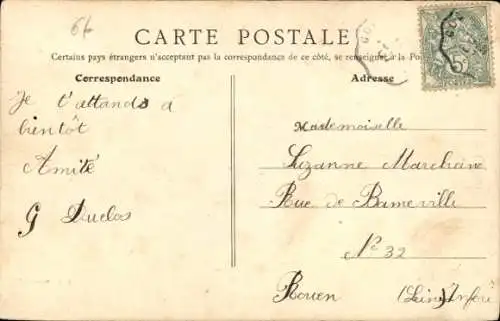 6f
CARTE POSTALE
Certains pays étrangers n'acceptant pas la correspondance de ce côté, se renseigner à la Po
Correspondance
Adresse
Je t'attends à
bientôt
Amitié
G Duclos
Mademoiselle
Suzanne Marchan
Rue de Bameville
No 32
Rouen (Seine Inferi
5